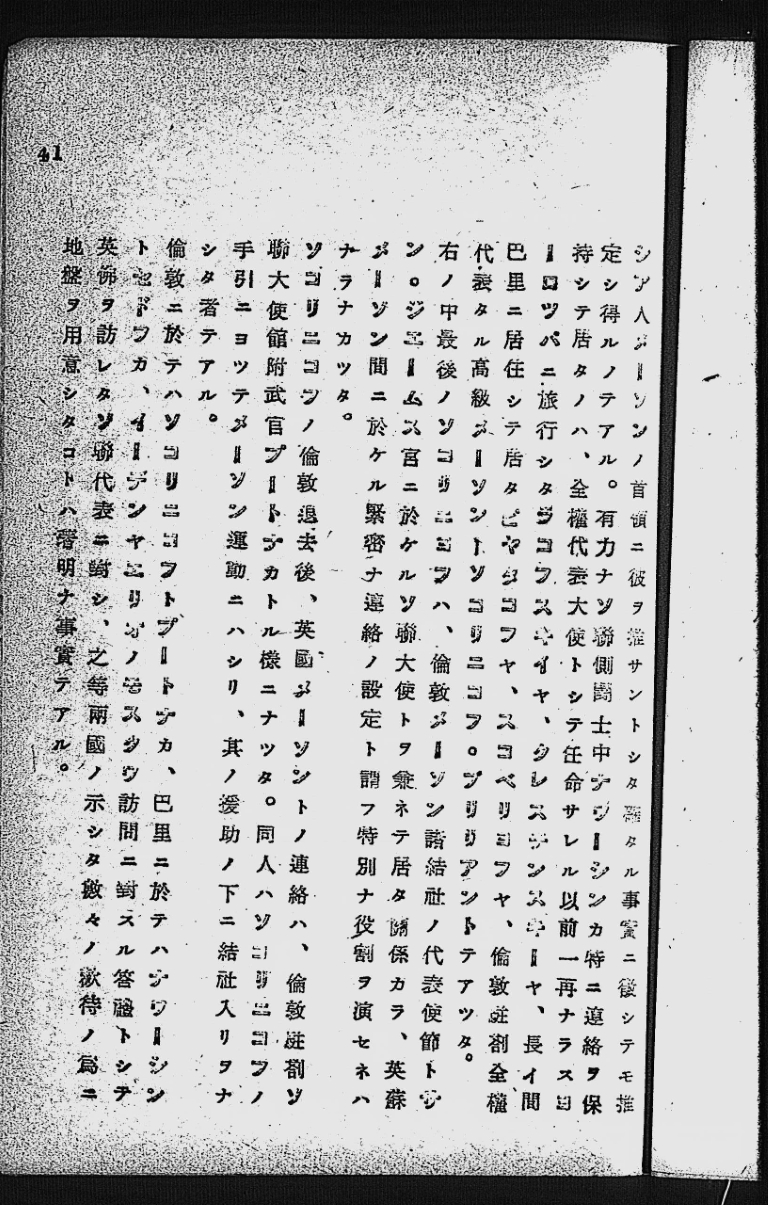 シア人メーソンノ首領ニ彼ヲ推サントシタ確タル事實ニ徴シテモ推
定シ得ルノテアル。有力ナソ聯側鬪士中ナワーシンカ特ニ連絡ヲ保
持シテ居タノハ、全權代表大使トシテ任命サレル以前一再ナラスヨ
ーロツパニ旅行シタラコフスキイヤ、クレスチンスキーヤ、長イ間
巴里ニ居住シテ居タピヤタコフヤ、スコベリヨフヤ、倫敦駐剳全權
代表タル高級メーソントソコリニコフ。ブリリアントテアツタ。
右ノ中最後ノソコリニコフハ、倫敦メーソン諸結社ノ代表使節トサ
ン。ジエームス宮ニ於ケルソ聯大使トヲ兼ネテ居タ關係カラ、英蘇
メーソン間ニ於ケル緊密ナ連絡ノ設定ト謂フ特別ナ役割ヲ演セネハ
ナラナカツタ。
ソコリニコフノ倫敦退去後、英國メーソントノ連絡ハ、倫敦駐剳ソ
聯大使館附武官プートナカトル樣ニナツタ。同人ハソコリニコフノ
手引ニヨツテメーソン運動ニハシリ、其ノ援助ノ下ニ結社入リヲナ
シタ者テアル。
倫敦ニ於テハソコリニコフトプートナカ、巴里ニ於テハナワーシン
トセドフカ、イーデンヤエリオノモスクワ訪問ニ對スル答禮トシテ
英佛ヲ訪レタソ聯代表ニ對シ、之等兩國ノ示シタ數々ノ歡待ノ爲ニ
地盤ヲ用意シタコトハ著明ナ事實テアル。
41